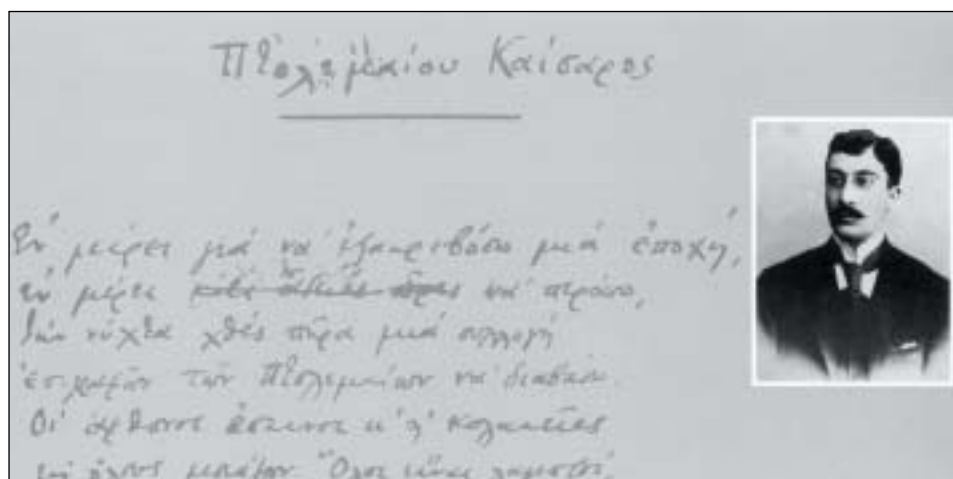 Πτολεμαίου Καίσαρος
Ἐν μέρει γιά νά ἐξακριβώσω μιά ἐποχή,
ἐν μέρει νά περάσω,
τήν νύχτα χθές πῆρα μιά συλλογή
ἐπιγραφῶν τῶν Πτολεμαίων νά διαβάσω.
Οἱ ἄφθονοι ἔπαινοι κ' ᾑ κολακεῖες
Ὅλοι εἶναι λαμπροί,